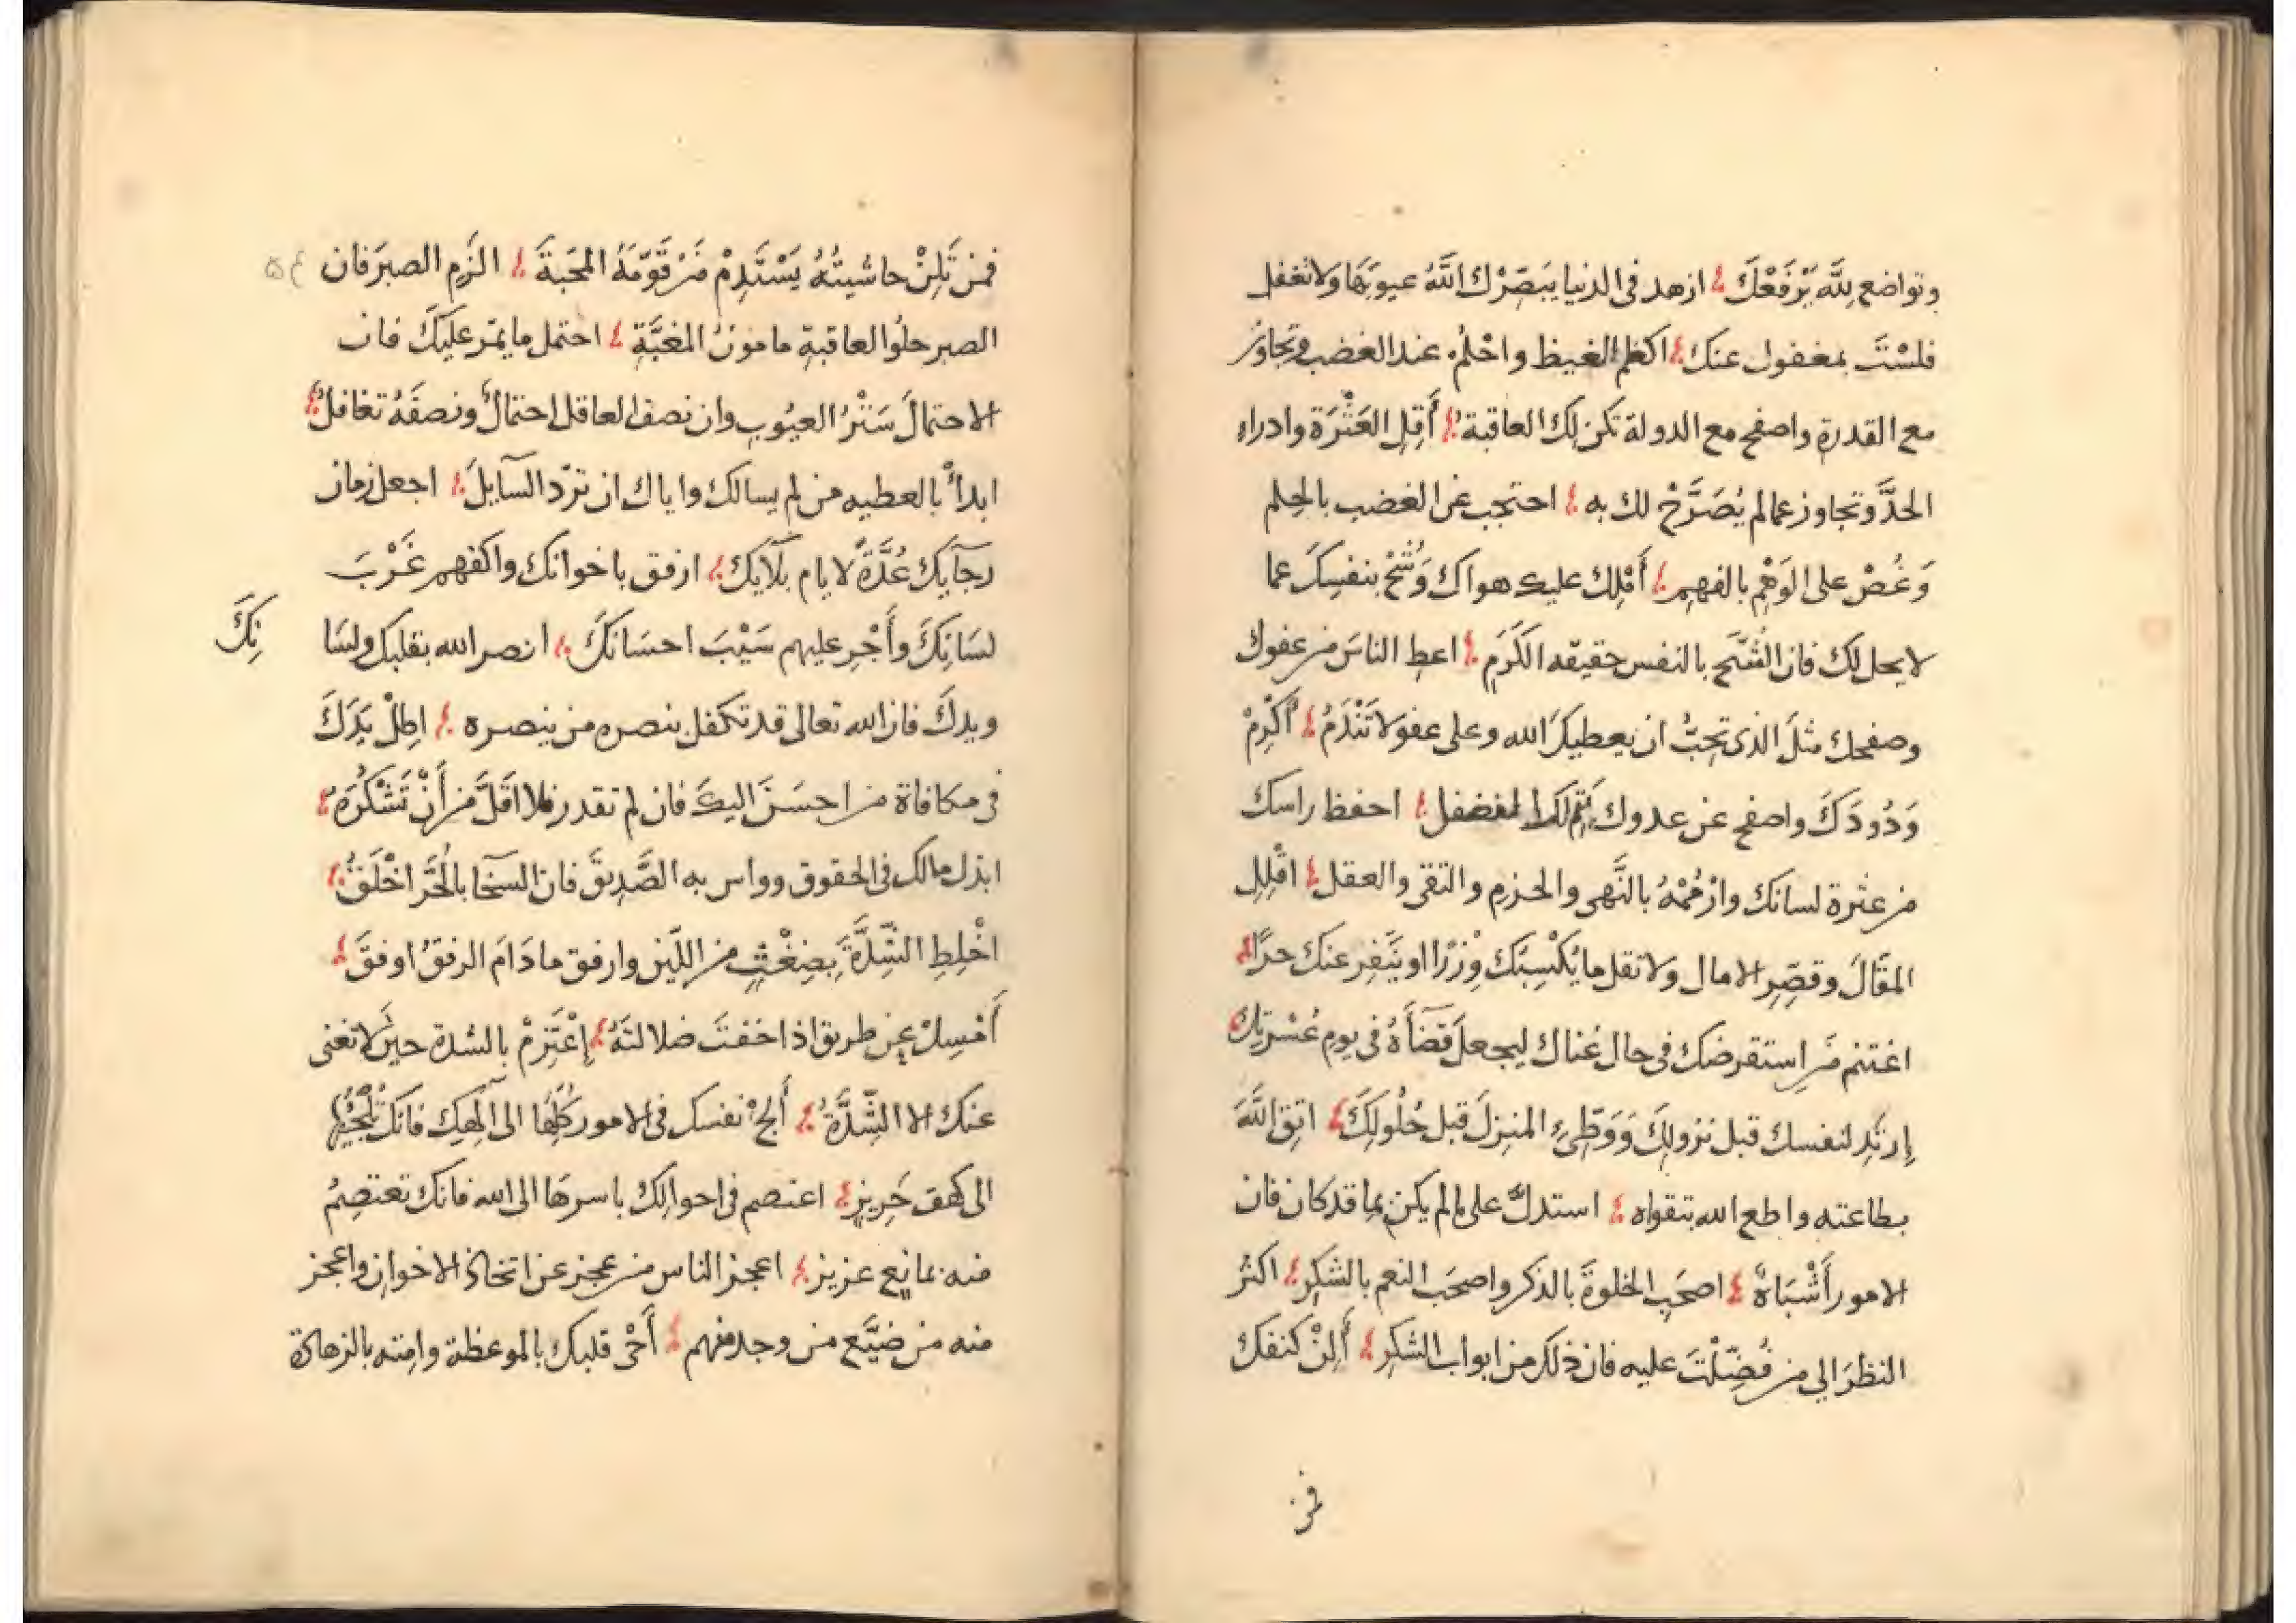 وتواضع لِلَّهِ يَرْفَعْكَ ازهد فى الدنيا يُبَصِّرْكَ اللَّهُ عيوبَهَا ولا تغفل
فلسْتَ بمغفول عنك اكظم الغيظ واحْلُم عند الغضب وتجاوَز
مع القدرة واصفح مع الدولة تكن لك العاقبة أَقِلِ العَثْرَة وادراء
الحدَّ وتجاوز عمالم يُصَرَّحْ لك به احتجب عن الغضب بالحِلم
وَغُضْ على الوَهْمِ بالفهم أَمْلِك عليك هواك وَشُحَّ بنفسِكَ عما
لا يحل لك فان الشُّحَّ بالنفس حقيقه الكَرَمِ اعط الناسَ من عفوك
وصفحك مثلَ الذى تحِبُّ ان يعطيكَ الله وعلى عفو لا تَنْدَمْ أكْرِمْ
وَدُودَكَ واصفح عن عدوك يَتِمّ لك الفضل احفظ راسك
من عثرة لسانك وازْمُمْهُ بالنَّهى والحزم والتقى والعقل اقْلِلِ
المقَالَ وقصِّرِ الامال ولا تقل ما يُكْسِبُكَ وِزْرًا او يُنَفِر عنك حرًا
اغتنم مَنِ استقرضك فى حال غناك ليجعلَ قَضَآءَهُ فى يومِ عُسْرَتِك
إرتَدِ لنفسك قبل نزولِكَ وَوَطِّىءِ المنزِلَ قبل حُلُولِكَ اتقِ اللَّهَ
بطاعته واطع الله بتقواه استدلَّ على مالم يكن بما قد كان فان
الامور أَشْبَاهٌ اصحَبِ الخلوةَ بالذكر واصحَب النعم بالشكرِ اكثر
النظرَ الي من فُضِّلْتَ عليه فان ذلك من ابواب الشكرِ أَلِنْ كنفك
فمن
فمن تَلِنْ حاشيتُهُ يَسْتَدِمْ مَنْ قَوْمِهِ المَحَبةَ الزَم الصبرَ فان
الصبر حلوُ العاقبةِ مامونُ المغبَّةِ احتمل ما يمرّ عليَكَ فان
الاحتمالَ سَتْرُ العيُوبِ وان نصف العاقل احتمالٌ ونصفَهُ تغافلٌ
ابدأْ بالعطيه من لم يسالك واياك ان تردّ السآيلَ اجعل زمان
رجآيكَ عُدَّةً لايام بَلآيِكَ ارفق باخوانك واكفهم غَرْبَ
لسَانِكَ وأَجْرِ عليهم سَيْبَ احسَانكَ انصر الله بقلبك ولسَا
نِكَ
ويدكَ فان الله تعالى قد تكفل بنصره من ينصره اطِلْ يَدَكَ
فى مكافاة من احسَنَ اليكَ فان لم تقدر فلا اقَلَّ من أَنْ تَشْكُرَه
ابذل مالك فى الحقوق وواس به الصَّدِيقَ فان السَّخآ بالحُرِّ اخْلَقُ
اخْلِطِ الشِّدَّةَ بِضِغْثٍ من اللّين وارفق ما دَامَ الرفقُ اوفقَ
أَمْسِكْ عن طريق اذا خفتَ ضلالتَهُ إِعْتَزِمْ بالشدة حين لا تغنى
عنك الا الشِّدَّةُ أَلجِ نفسك فى الامور كُلِّهَا الى الَهِكَ فانك تُلْجِئُهَا
الى كهف حَرِيزٍ اعتصم فى احوالِك باسرهَا الى الله فانك تعتصِمُ
منه بمانِعٍ عزيز اعجز الناس من عجز عن اتخاذ الاخوان واعجز
منه من ضيَّع من وجد منهم أَحْىِ قلبك بالموعظة وامته بالزهادة